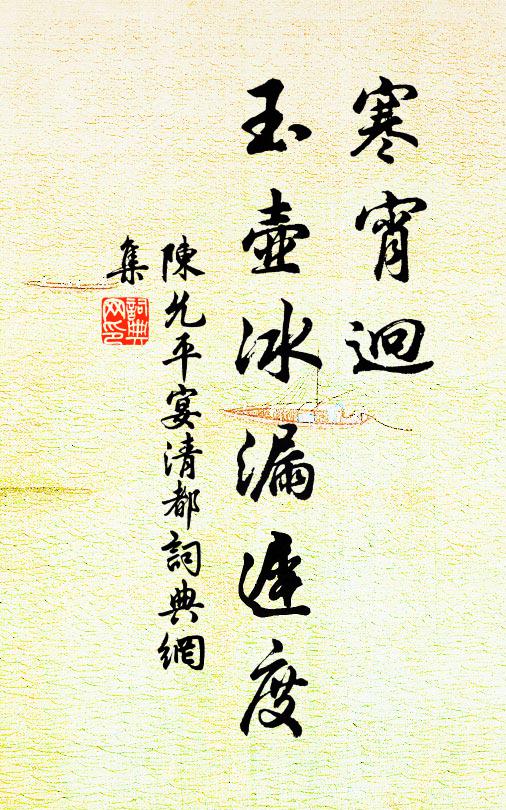 寒宵迥
玉壺冰漏遲度
陳允平宴清都詞典網
集
詞典
网印